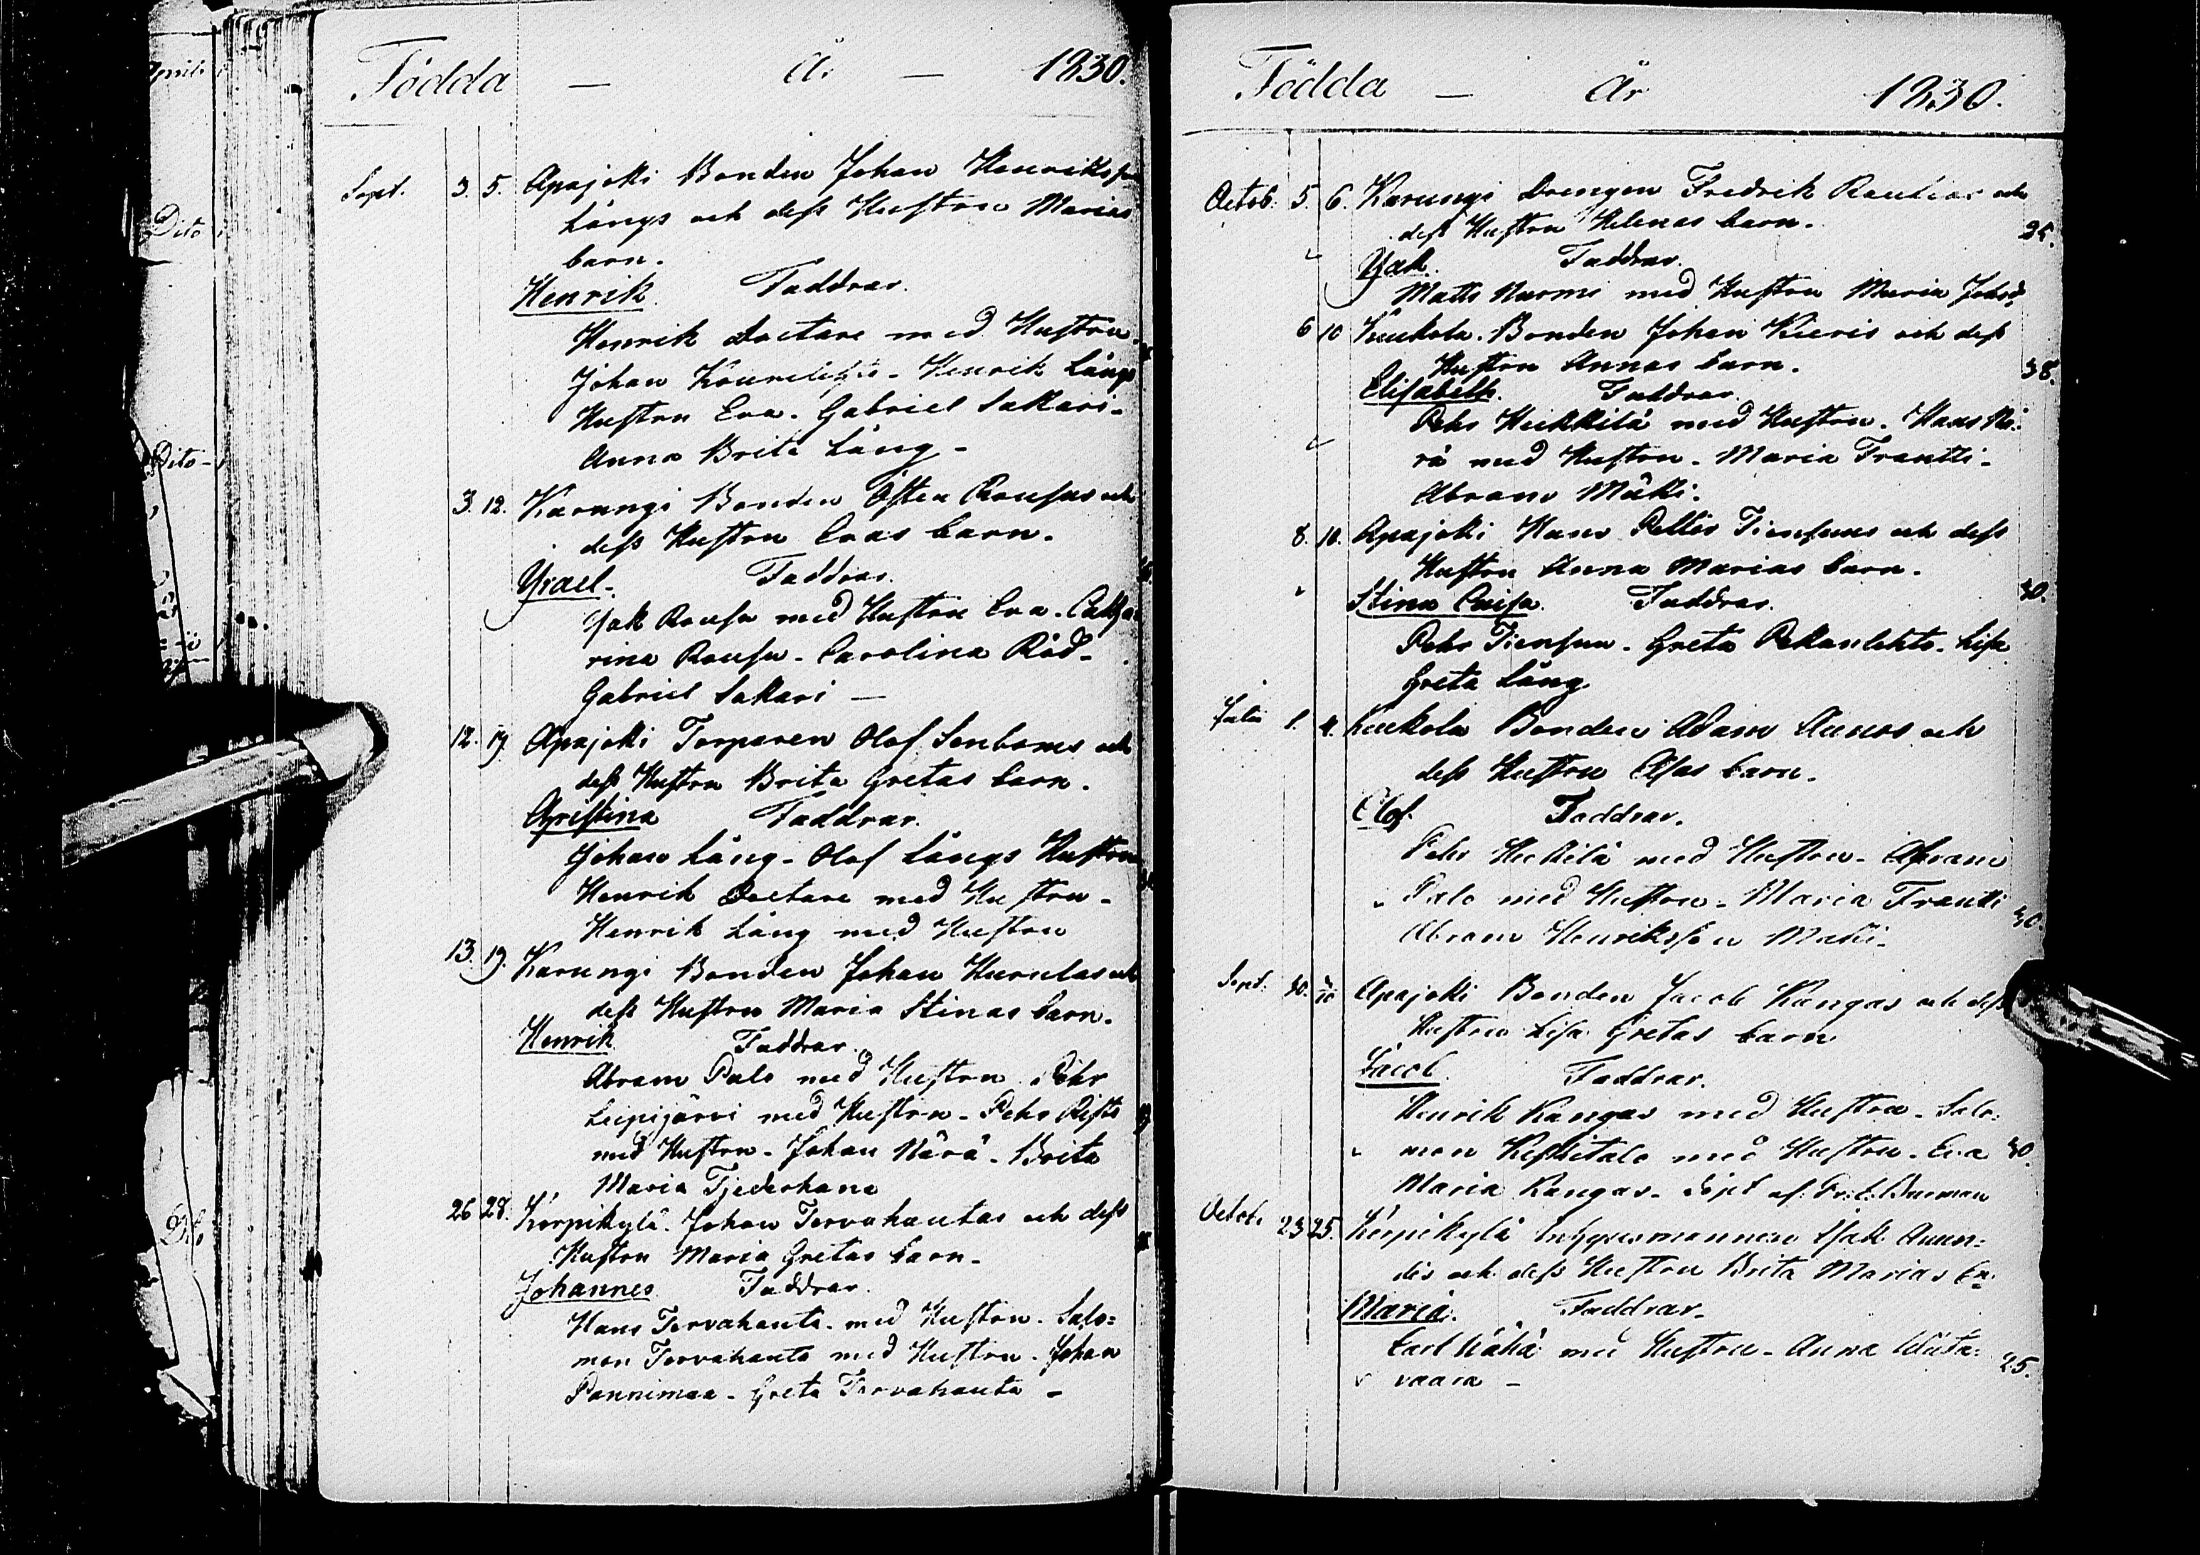 Födda — År — 1830.
Sept. 3. 5. Apajokki Bonden Johan Henriksson
Långs och dess Hustru Marias
barn.
Henrik. Faddrar.
Henrik Doctare med Hustru
Johan - Henrik Långs
Hustru Eva. Gabriel Sakari-
Anna Brita Lång -
3. 12. Karungi Bonden Östen Rousus och
dess Hustru Evas barn.
Ysrael. Faddrar.
Ysak Rousu med Hustru Eva. Catha
rina Rousu - Carolina Röd-
Gabriel Sakari —
12. 19. Apajokki Torparen Olof Senboms och
dess Hustru Brita Gretas barn.
Christina Faddrar.
Johan Lång - Olof Långs Hustru
Henrik Doctare med Hustru -
Henrik Lång med Hustru
13. 19. Karungi Bonden Johan och
dess Hustru Maria Stinas barn.
Henrik Faddrar.
Abram Palo med Hustru Pehr
Leipijärvi med Hustru - Pehr Risti
med Hustru - Johan Närä - Brita
Maria Tjederhane
26 28. Korpikylä. Johan Tervahautas och dess
Hustru Maria Gretas barn.
Johannes Faddrar.
Hans Tervahauta med Hustru. Salo=
mon Tervahauta med Hustru. Johan
Pannimaa - Greta Tervahauta -
Födda — År 1830.
Octob. 5. 6. Karungi Drengen Fredrik Rautios och
dess Hustru Helenas barn.
Ysak. Faddrar.
Matts Nurmi med Hustru Maria
6 10 Kukkola. Bonden Johan Kieris och dess
Hustru Annas barn. 38.
Elisabeth. Faddrar.
Pehr Heikkilä med Hustru. Hans Nä:
rä med Hustru - Maria Frantti -
Abram Mäki.
8. 10. Apajoki Hans Pettis Tiensuus och dess
Hustru Anna Marias barn.
Stina Caisa. Faddrar. 30.
Pehr Tiensuu - Greta Pekanlehto. Lisa
Greta Lång.
1. 4. Kukkola Bonden Adam Aunos och
dess Hustru Asas barn.
Olof. Faddrar.
Pehr Heikkilä med Hustru - Abram
Palo med Hustru - Maria Frantti
Abram Henriksson Mäki. 30.
Sept. 30. 3/10 Apajokki Bonden Jacob Kangas och dess
Hustru Lisa Gretas barn
Jacob. Faddrar.
Henrik Kangas med Hustru. Salo:
mon Keskitalo med Hustru. Eva 30.
Maria Kangas. Döpt af Burman
Octob. 23 25. Korpikylä Inhysesmannen Isak Auun=
dis och dess Hustru Brita Marias bn.
Maria. Faddrar.
Carl Vähä med Hustru - Anna Wiita:
vaara - 25.